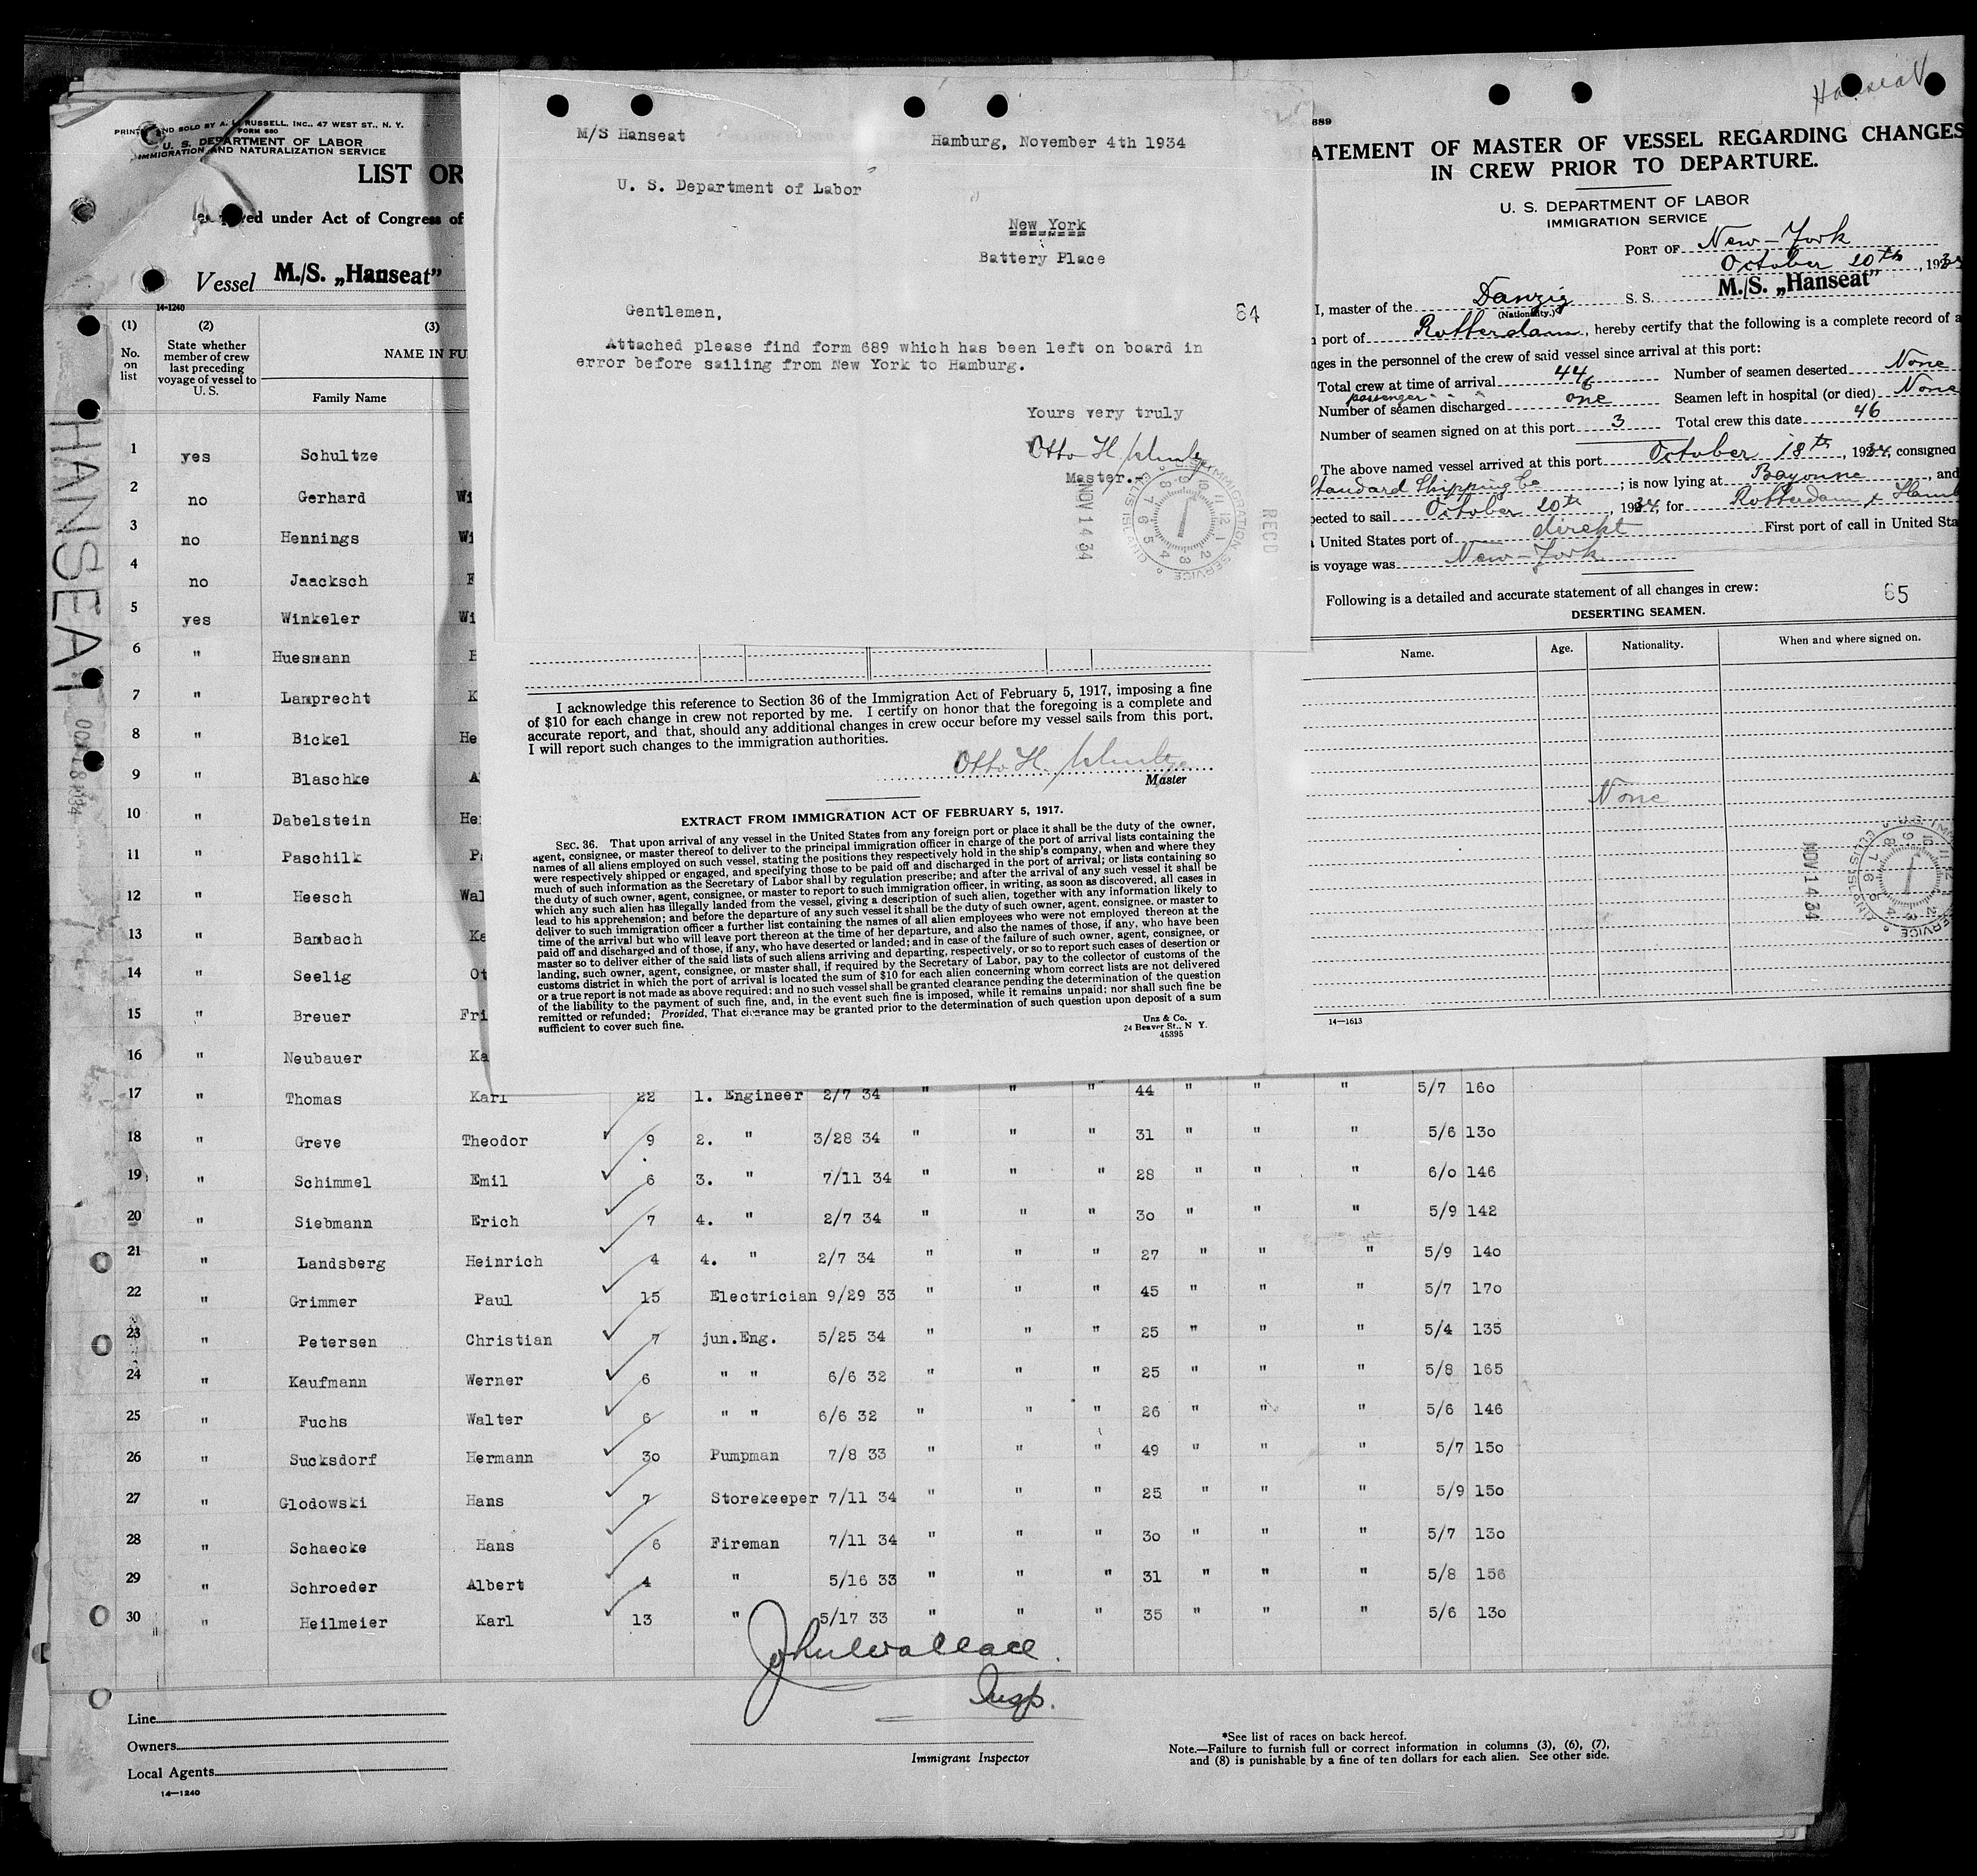 PRINTED AND SOLD BY A. L. RUSSELL, INC., 47 WEST ST., N. Y.
FORM 680
U. S. DEPARTMENT OF LABOR
IMMIGRATION AND NATURALIZATION SERVICE
LIST OR
under Act of Congress of
Vessel M./S. „Hanseat”
14-1240
(1) (2) (3)
No. on list
State whether member of crew last preceding voyage of vessel to U. S.
NAME IN FU
Family Name
HANSEAT
1 yes Schultze
2 no Gerhard Wi
3 no Hennings Wi
4 no Jaacksch
5 yes Winkeler Wi
6 " Huesmann H
7 " Lamprecht K
8 " Bickel He
9 " Blaschke A
10 " Dabelstein He
11 " Paschilk P
12 " Heesch Wal
13 " Bambach Ka
14 " Seelig Ot
15 " Breuer Fri
16 " Neubauer Ka
17 " Thomas Karl 22 1. Engineer 2/7 34 " " " 44 " " " 5/7 160
18 " Greve Theodor 9 2. " 3/28 34 " " " 31 " " " 5/6 130
19 " Schimmel Emil 6 3. " 7/11 34 " " " 28 " " " 6/0 146
20 " Siebmann Erich 7 4. " 2/7 34 " " " 30 " " " 5/9 142
21 " Landsberg Heinrich 4 4. " 2/7 34 " " " 27 " " " 5/9 140
22 " Grimmer Paul 15 Electrician 9/29 33 " " " 45 " " " 5/7 170
23 " Petersen Christian 7 jun.Eng. 5/25 34 " " " 25 " " " 5/4 135
24 " Kaufmann Werner 6 " " 6/6 32 " " " 25 " " " 5/8 165
25 " Fuchs Walter 6 " " 6/6 32 " " " 26 " " " 5/6 146
26 " Sucksdorf Hermann 30 Pumpman 7/8 33 " " " 49 " " " 5/7 150
27 " Glodowski Hans 7 Storekeeper 7/11 34 " " " 25 " " " 5/9 150
28 " Schaecke Hans 6 Fireman 7/11 34 " " " 30 " " " 5/7 130
29 " Schroeder Albert 4 " 5/16 33 " " " 31 " " " 5/8 156
30 " Heilmeier Karl 13 " 5/17 33 " " " 35 " " " 5/6 130
John Wallace
Insp.
Line
Owners
Local Agents
14—1240
Immigrant Inspector
*See list of races on back hereof.
Note.—Failure to furnish full or correct information in columns (3), (6), (7),
and (8) is punishable by a fine of ten dollars for each alien. See other side.
M/S Hanseat Hamburg, November 4th 1934
U. S. Department of Labor
New York
Battery Place
Gentlemen,
64
Attached please find form 689 which has been left on board in
error before sailing from New York to Hamburg.
Yours very truly
Otto H. Schultze
Master.-
NOV 14 34
U.S. IMMIGRATION SERVICE ELLIS ISLAND
RECD
I acknowledge this reference to Section 36 of the Immigration Act of February 5, 1917, imposing a fine
of $10 for each change in crew not reported by me. I certify on honor that the foregoing is a complete and
accurate report, and that, should any additional changes in crew occur before my vessel sails from this port,
I will report such changes to the immigration authorities.
Otto H. Schultze
Master
EXTRACT FROM IMMIGRATION ACT OF FEBRUARY 5, 1917.
SEC. 36. That upon arrival of any vessel in the United States from any foreign port or place it shall be the duty of the owner,
agent, consignee, or master thereof to deliver to the principal immigration officer in charge of the port of arrival lists containing the
names of all aliens employed on such vessel, stating the positions they respectively hold in the ship's company, when and where they
were respectively shipped or engaged, and specifying those to be paid off and discharged in the port of arrival; or lists containing so
much of such information as the Secretary of Labor shall by regulation prescribe; and after the arrival of any such vessel it shall be
the duty of such owner, agent, consignee, or master to report to such immigration officer, in writing, as soon as discovered, all cases in
which any such alien has illegally landed from the vessel, giving a description of such alien, together with any information likely to
lead to his apprehension; and before the departure of any such vessel it shall be the duty of such owner, agent, consignee, or master to
deliver to such immigration officer a further list containing the names of all alien employees who were not employed thereon at the
time of the arrival but who will leave port thereon at the time of her departure, and also the names of those, if any, who have been
paid off and discharged and of those, if any, who have deserted or landed; and in case of the failure of such owner, agent, consignee, or
master so to deliver either of the said lists of such aliens arriving and departing, respectively, or so to report such cases of desertion or
landing, such owner, agent, consignee, or master shall, if required by the Secretary of Labor, pay to the collector of customs of the
customs district in which the port of arrival is located the sum of $10 for each alien concerning whom correct lists are not delivered
or a true report is not made as above required; and no such vessel shall be granted clearance pending the determination of the question
of the liability to the payment of such fine, and, in the event such fine is imposed, while it remains unpaid; nor shall such fine be
remitted or refunded; Provided, That clearance may be granted prior to the determination of such question upon deposit of a sum
sufficient to cover such fine.
Unz & Co.
24 Beaver St., N Y.
45395
Hanseat
689
ATEMENT OF MASTER OF VESSEL REGARDING CHANGES
IN CREW PRIOR TO DEPARTURE.
U. S. DEPARTMENT OF LABOR
IMMIGRATION SERVICE
PORT OF New-York
October 20th, 1934
I, master of the Danzig S. S. M./S. „Hanseat”
(Nationality.)
port of Rotterdam, hereby certify that the following is a complete record of a
nges in the personnel of the crew of said vessel since arrival at this port:
Total crew at time of arrival 44 Number of seamen deserted None
passenger " " 6
Number of seamen discharged one Seamen left in hospital (or died) None
Number of seamen signed on at this port 3 Total crew this date 46
The above named vessel arrived at this port October 18th, 1934, consigned
Standard Shipping Co; is now lying at Bayonne, and
pected to sail October 20th, 1934, for Rotterdam & Hamb
United States port of direkt First port of call in United Sta
is voyage was New-York
Following is a detailed and accurate statement of all changes in crew:
65
DESERTING SEAMEN.
Name. Age. Nationality. When and where signed on.
None
NOV 14 34
14—1613